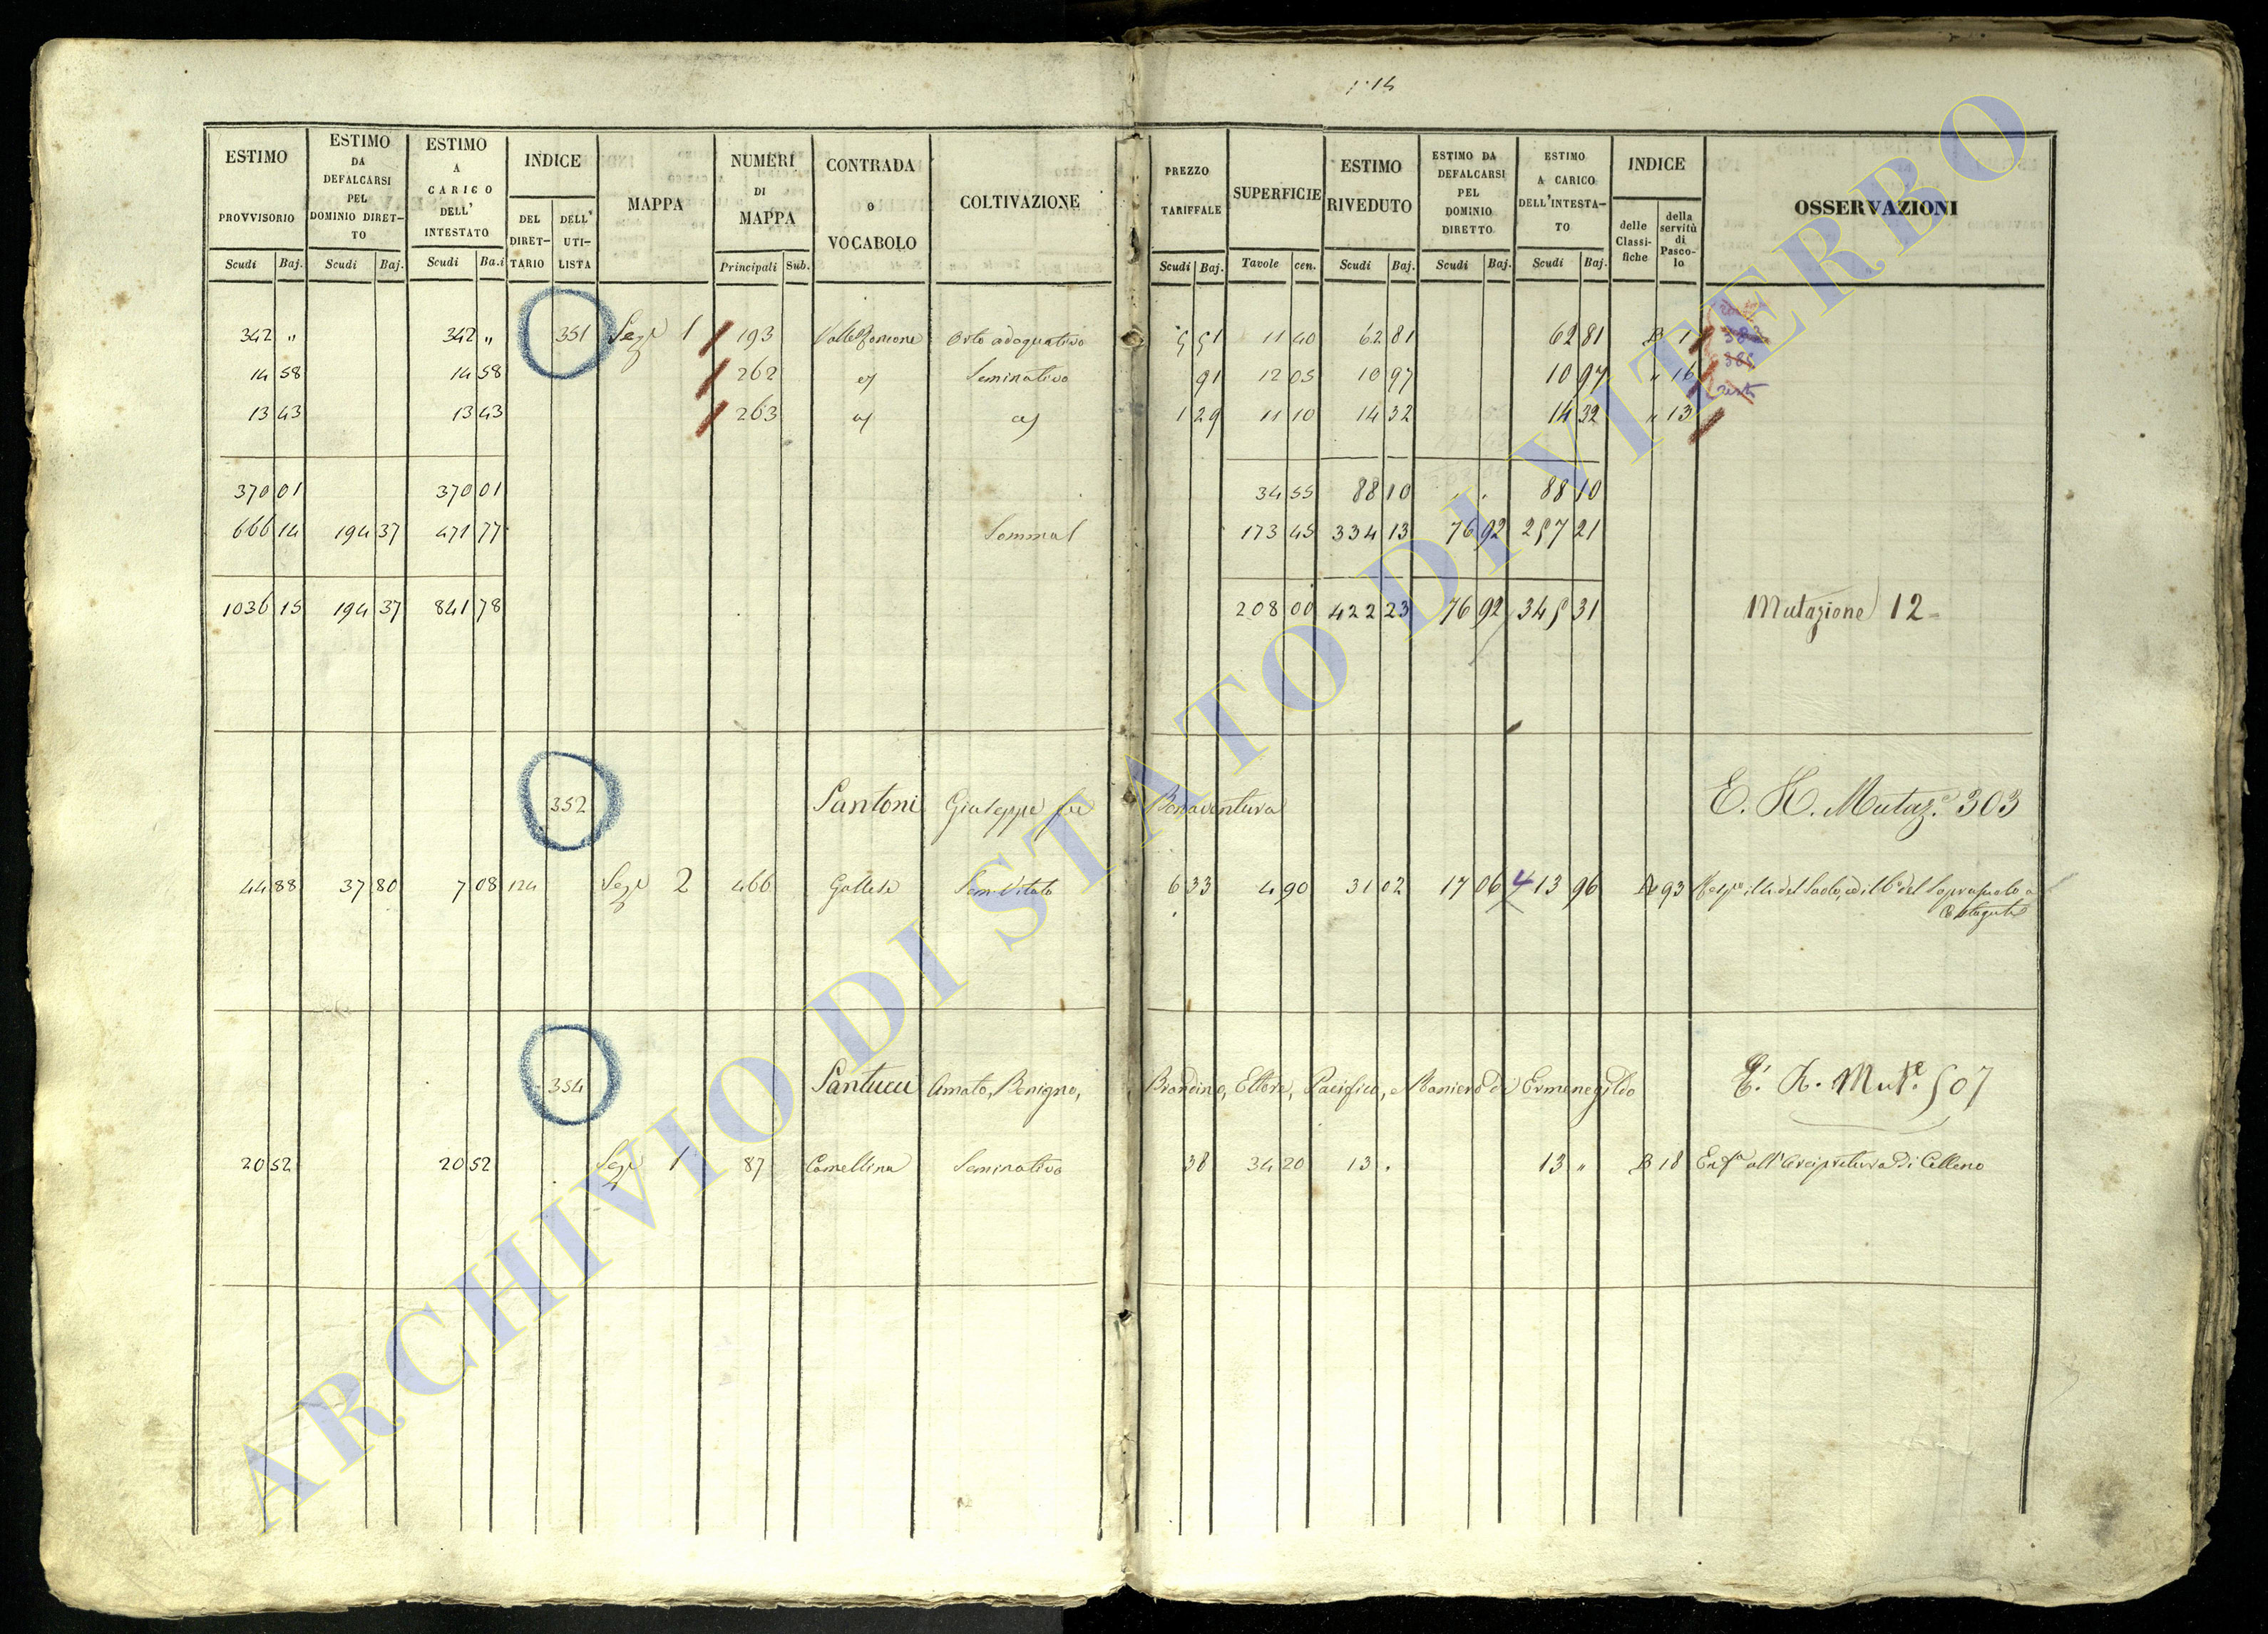 ESTIMO PROVVISORIO Scudi Baj.
ESTIMO DA DEFALCARSI PEL DOMINIO DIRET-TO Scudi Baj.
ESTIMO A CARICO DELL' INTESTATO Scudi Ba.i
INDICE DEL DIRET-TARIO DELL' UTI-LISTA
MAPPA
NUMERI DI MAPPA Principali Sub.
CONTRADA O VOCABOLO
COLTIVAZIONE
PREZZO TARIFFALE Scudi Baj.
SUPERFICIE Tavole cen.
ESTIMO RIVEDUTO Scudi Baj.
ESTIMO DA DEFALCARSI PEL DOMINIO DIRETTO Scudi Baj.
ESTIMO A CARICO DELL'INTESTA-TO Scudi Baj.
INDICE delle Classi-fiche della servitù di Pasco-lo
OSSERVAZIONI
342 " 342 " 351 Sez.e 1 193 Orto adaquativo 5 51 11 40 62 81 62 81 B 1
14 58 14 58 262 Seminativo 91 12 05 10 97 10 97 " 16
13 43 13 43 263 1 29 11 10 14 32 14 32 " 13
370 01 370 01 34 55 88 10 88 10
666 14 194 37 471 77 173 45 334 13 76 92 257 21
1036 15 194 37 841 78 208 00 422 23 76 92 345 31 Mutazione 12
352 Santoni Giuseppe fu Bonaventura E. H. Mutaz.e 303
44 88 37 80 7 08 124 Sez.e 2 466 Gallese Sem Vitato 6 33 4 90 31 02 17 06 4 13 96 93
354 Santucci Amato, Benigno, Brandino, Ettore, Pacifico, e Raniero di Ermenegildo E. H. Mut.e 507
20 52 20 52 Sez.e 1 87 Camellina Seminativo 38 34 20 13 . 13 " B 18 Enf.a all'Arcipretura di Celleno
ARCHIVIO DI STATO DI VITERBO